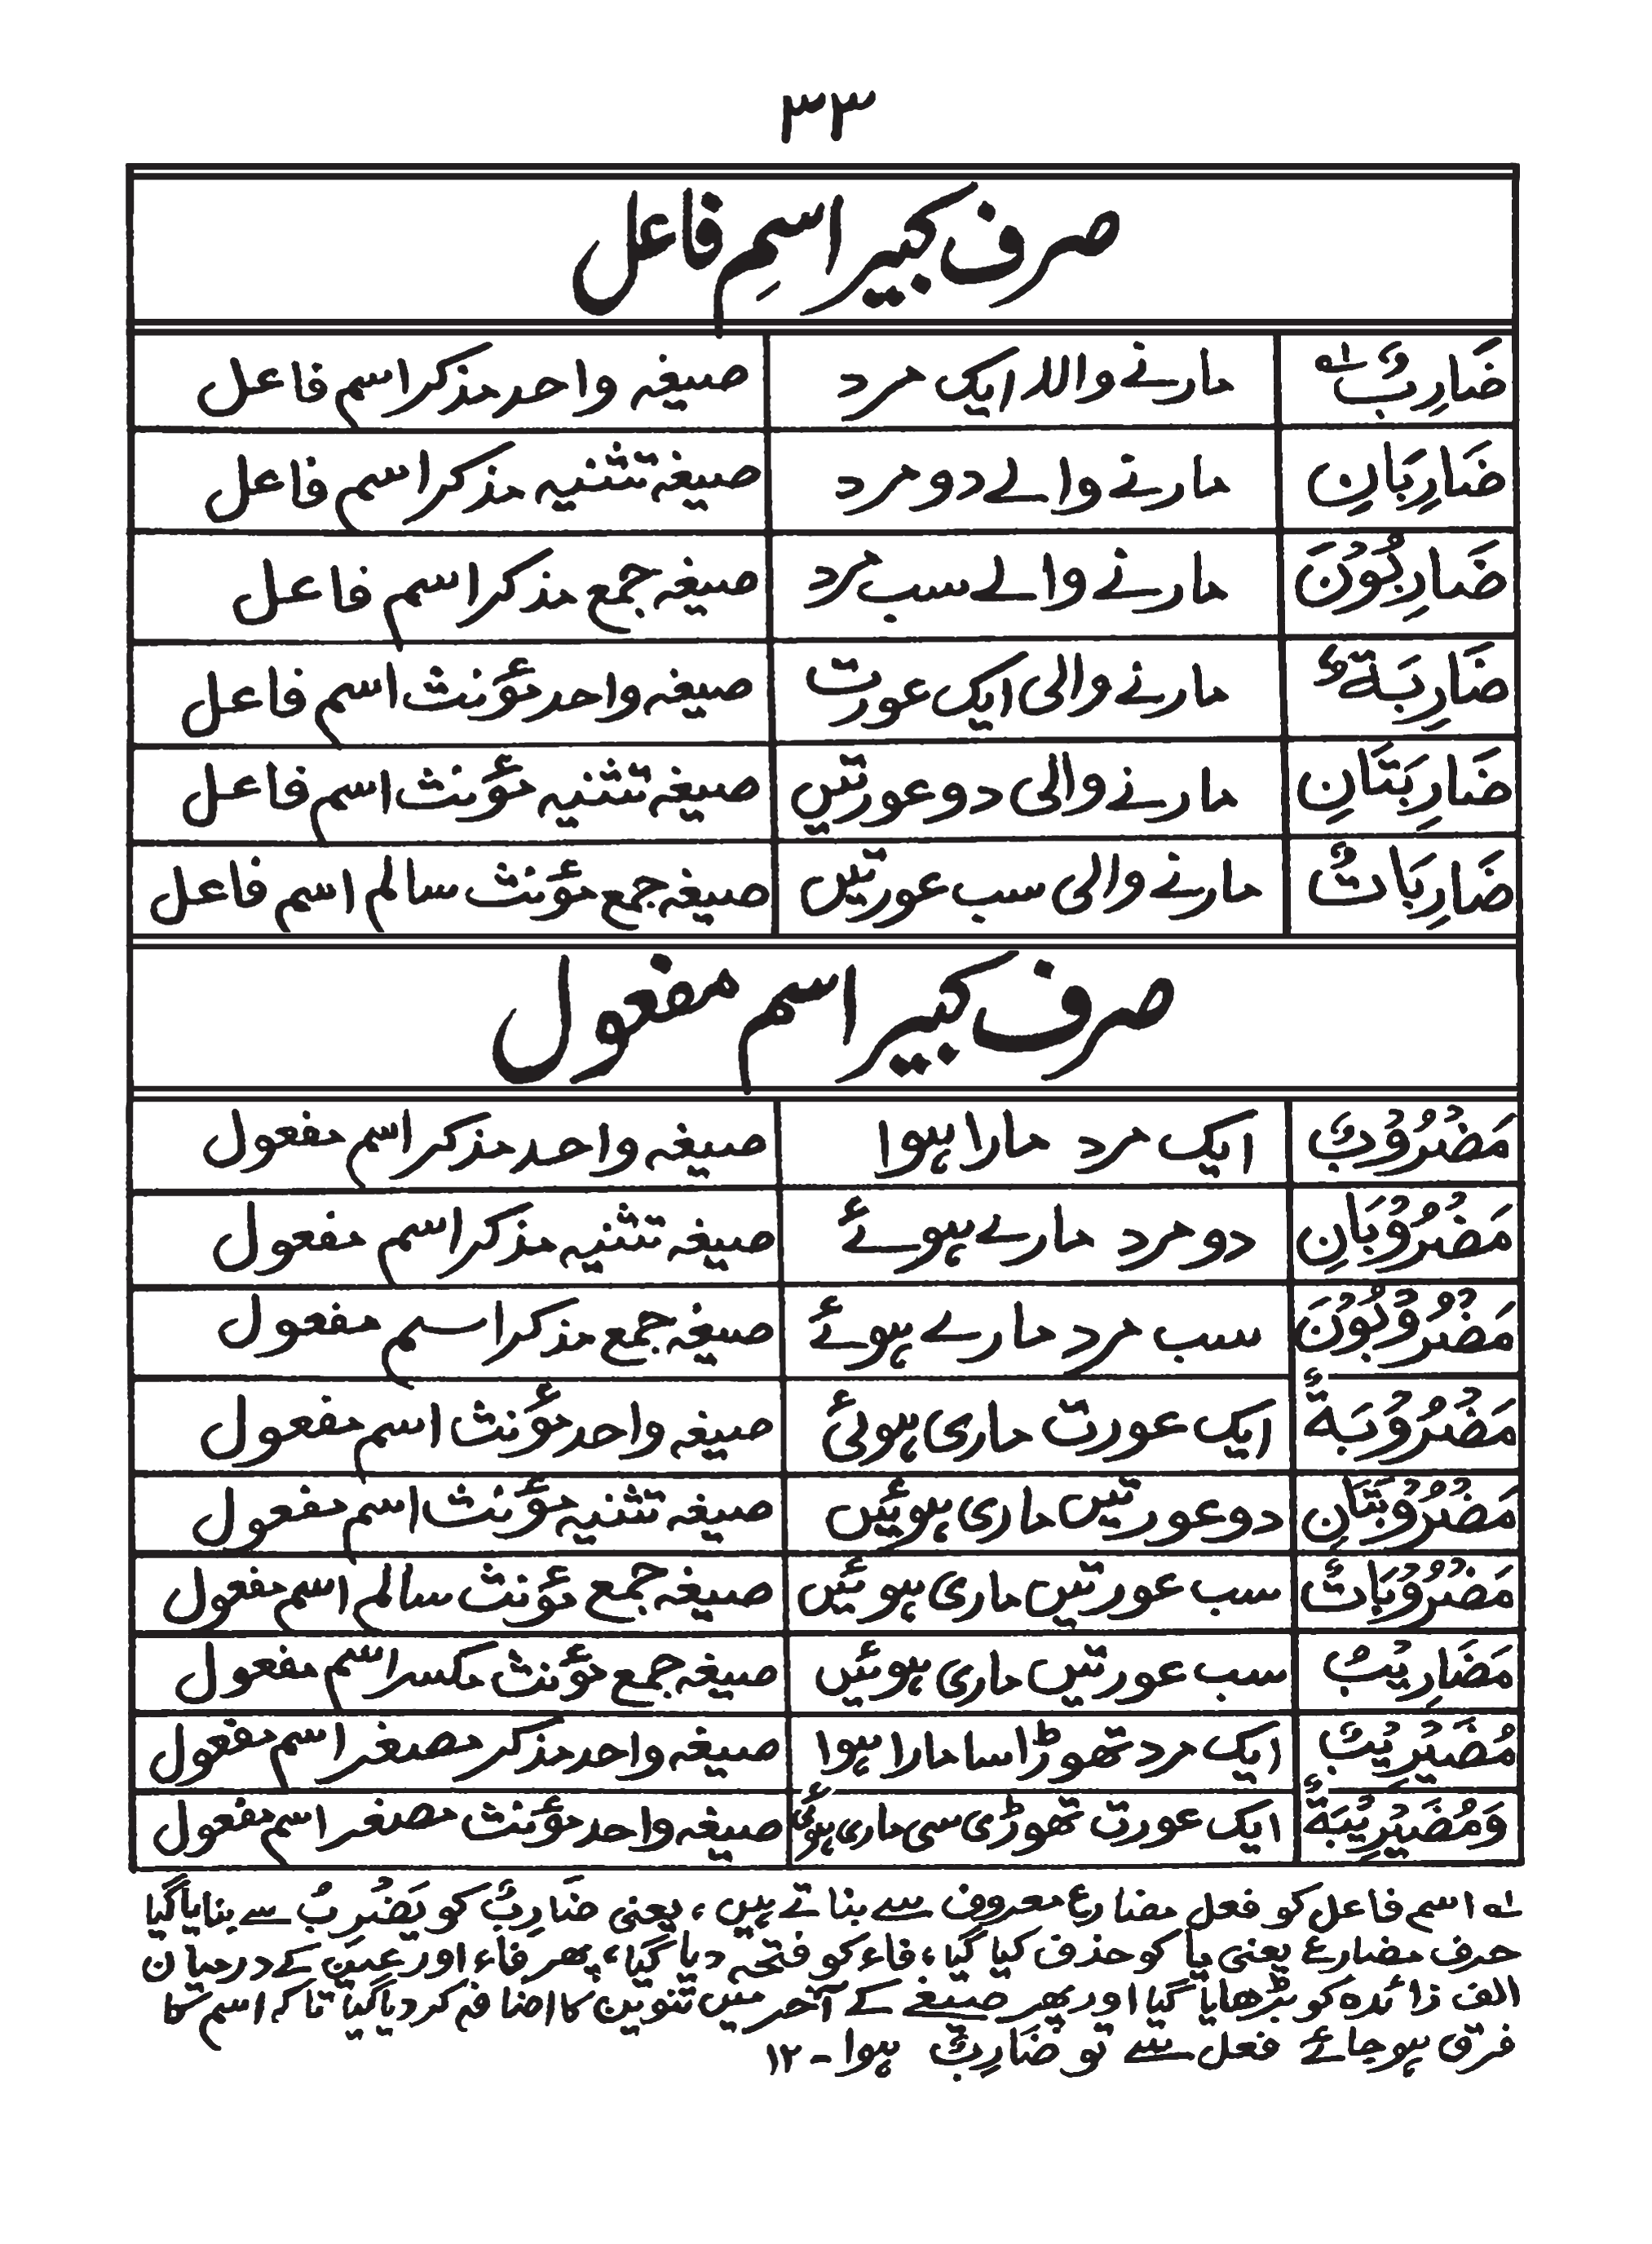 ۳۳
صرف کبیر اسمِ فاعل
ضَارِبٌ ؎۱ مارنے والا ایک مرد صیغہ واحد مذکر اسم فاعل
ضَارِبَانِ مارنے والے دو مرد صیغہ تثنیہ مذکر اسم فاعل
ضَارِبُونَ مارنے والے سب مرد صیغہ جمع مذکر اسم فاعل
ضَارِبَةٌ مارنے والی ایک عورت صیغہ واحد مؤنث اسم فاعل
ضَارِبَتَانِ مارنے والی دو عورتیں صیغہ تثنیہ مؤنث اسم فاعل
ضَارِبَاتٌ مارنے والی سب عورتیں صیغہ جمع مؤنث سالم اسم فاعل
صرف کبیر اسم مفعول
مَضْرُوْبٌ ایک مرد مارا ہوا صیغہ واحد مذکر اسم مفعول
مَضْرُوْبَانِ دو مرد مارے ہوئے صیغہ تثنیہ مذکر اسم مفعول
مَضْرُوْبُوْنَ سب مرد مارے ہوئے صیغہ جمع مذکر اسم مفعول
مَضْرُوْبَةٌ ایک عورت ماری ہوئی صیغہ واحد مؤنث اسم مفعول
مَضْرُوْبَتَانِ دو عورتیں ماری ہوئیں صیغہ تثنیہ مؤنث اسم مفعول
مَضْرُوْبَاتٌ سب عورتیں ماری ہوئیں صیغہ جمع مؤنث سالم اسم مفعول
مَضَارِیْبُ سب عورتیں ماری ہوئیں صیغہ جمع مؤنث مکسر اسم مفعول
مُضَیْرِیْبٌ ایک مرد تھوڑا سا مارا ہوا صیغہ واحد مذکر مصغر اسم مفعول
وَمُضَیْرِیْبَةٌ ایک عورت تھوڑی سی ماری ہوئی صیغہ واحد مؤنث مصغر اسم مفعول
؎۱ اسم فاعل کو فعل مضارع معروف سے بناتے ہیں، یعنی ضَارِبٌ کو یَضْرِبُ سے بنایا گیا
حرف مضارع یعنی یا کو حذف کیا گیا، فاء کو فتحہ دیا گیا، پھر فاء اور عین کے درمیان
الف زائدہ کو بڑھایا گیا اور پھر صیغے کے آخر میں تنوین کا اضافہ کر دیا گیا تاکہ اسم کا
فرق ہو جائے فعل سے تو ضَارِبٌ ہوا۔ ۱۲